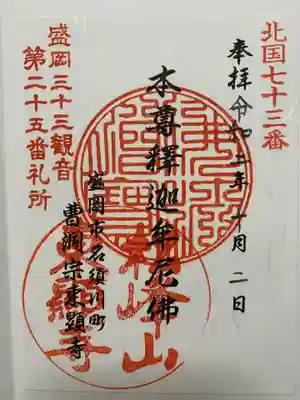 北国七十三番
奉拝令和七年十月二日
本尊釋迦牟尼佛
盛岡市名須川町
曹洞宗東顯寺
盛岡三十三観音
第二十五番札所